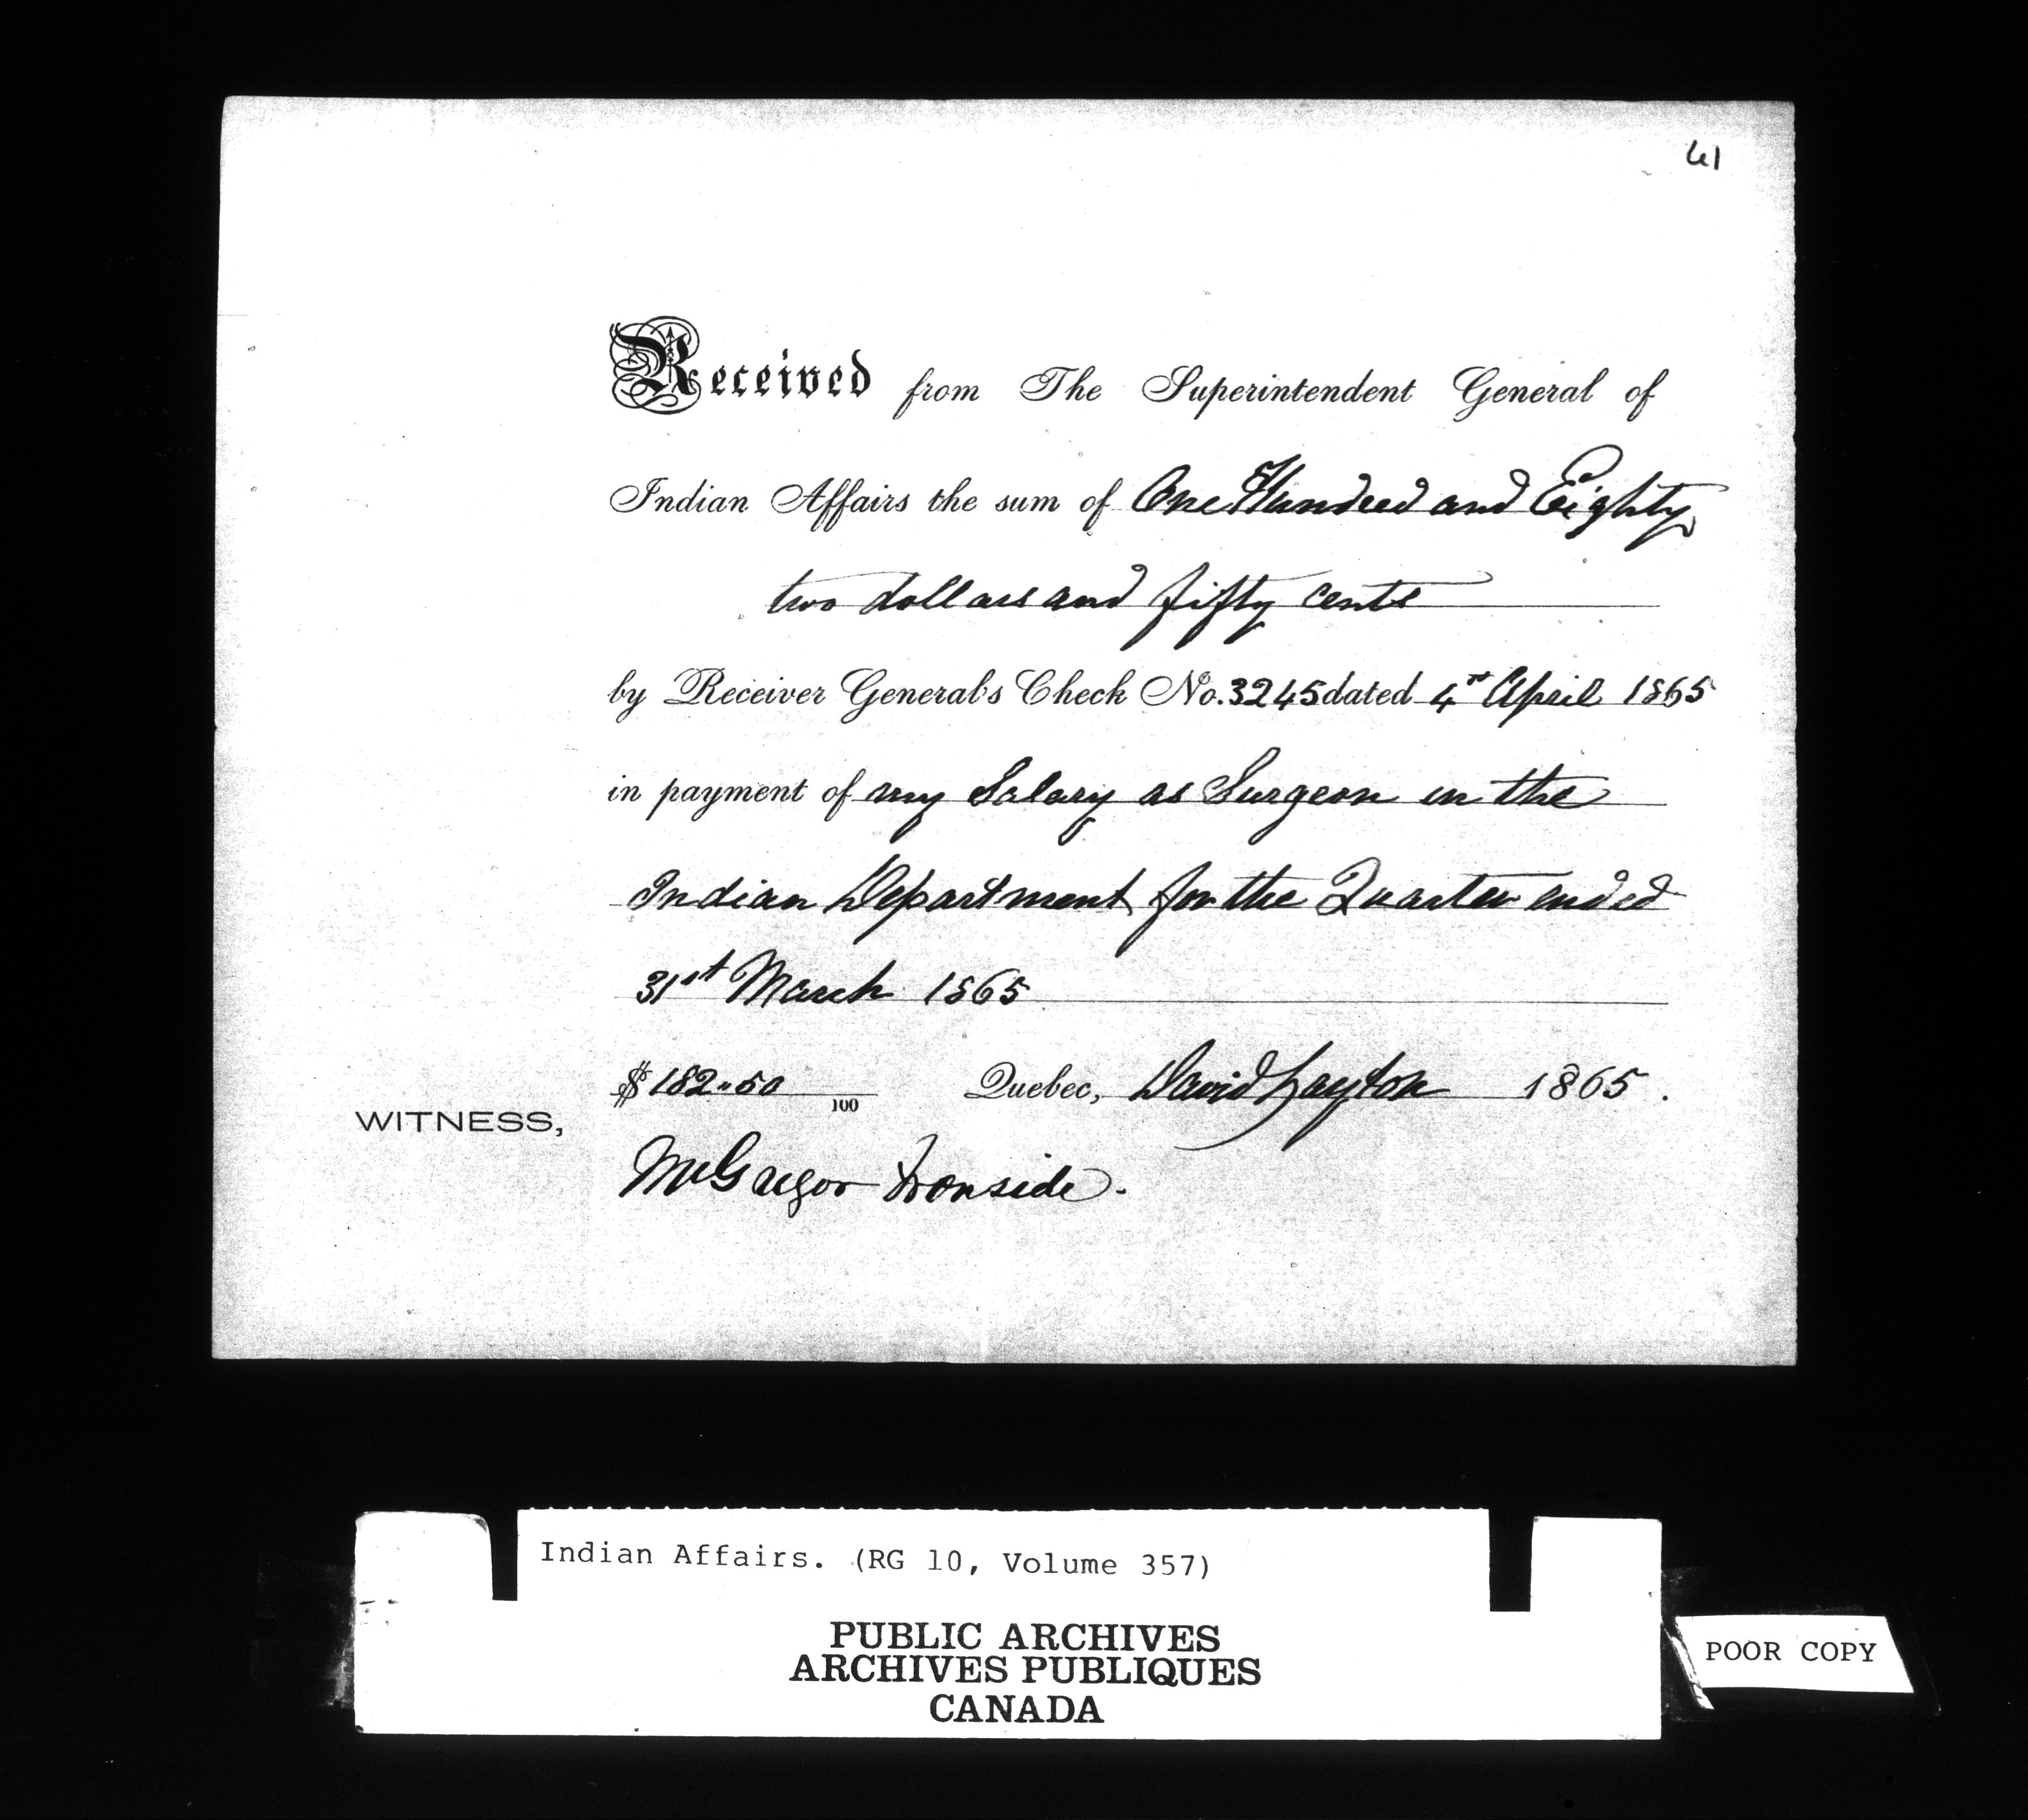 61
Received from The Superintendent General of
Indian Affairs the sum of One Hundred and Eighty
two dollars and fifty cents
by Receiver General's Check No. 3245 dated 4th April 1865
in payment of my Salary as Surgeon in the
Indian Department for the Quarter ended
31st March 1865
$ 182.50 100 Quebec, David Layton 1865.
WITNESS,
McGregor Ironside.
Indian Affairs. (RG 10, Volume 357)
PUBLIC ARCHIVES
ARCHIVES PUBLIQUES
CANADA
POOR COPY